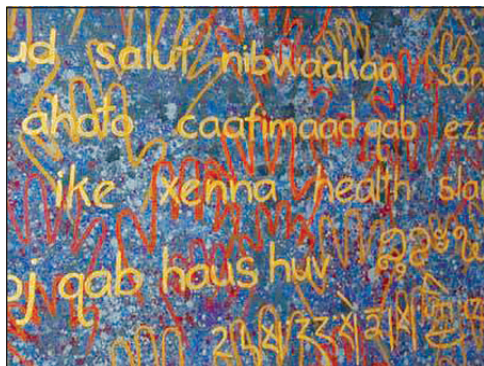 ud salut nibwaakaa san
ahoto caafimaad qab eze
ike xenna health slai
oj qab haus huv